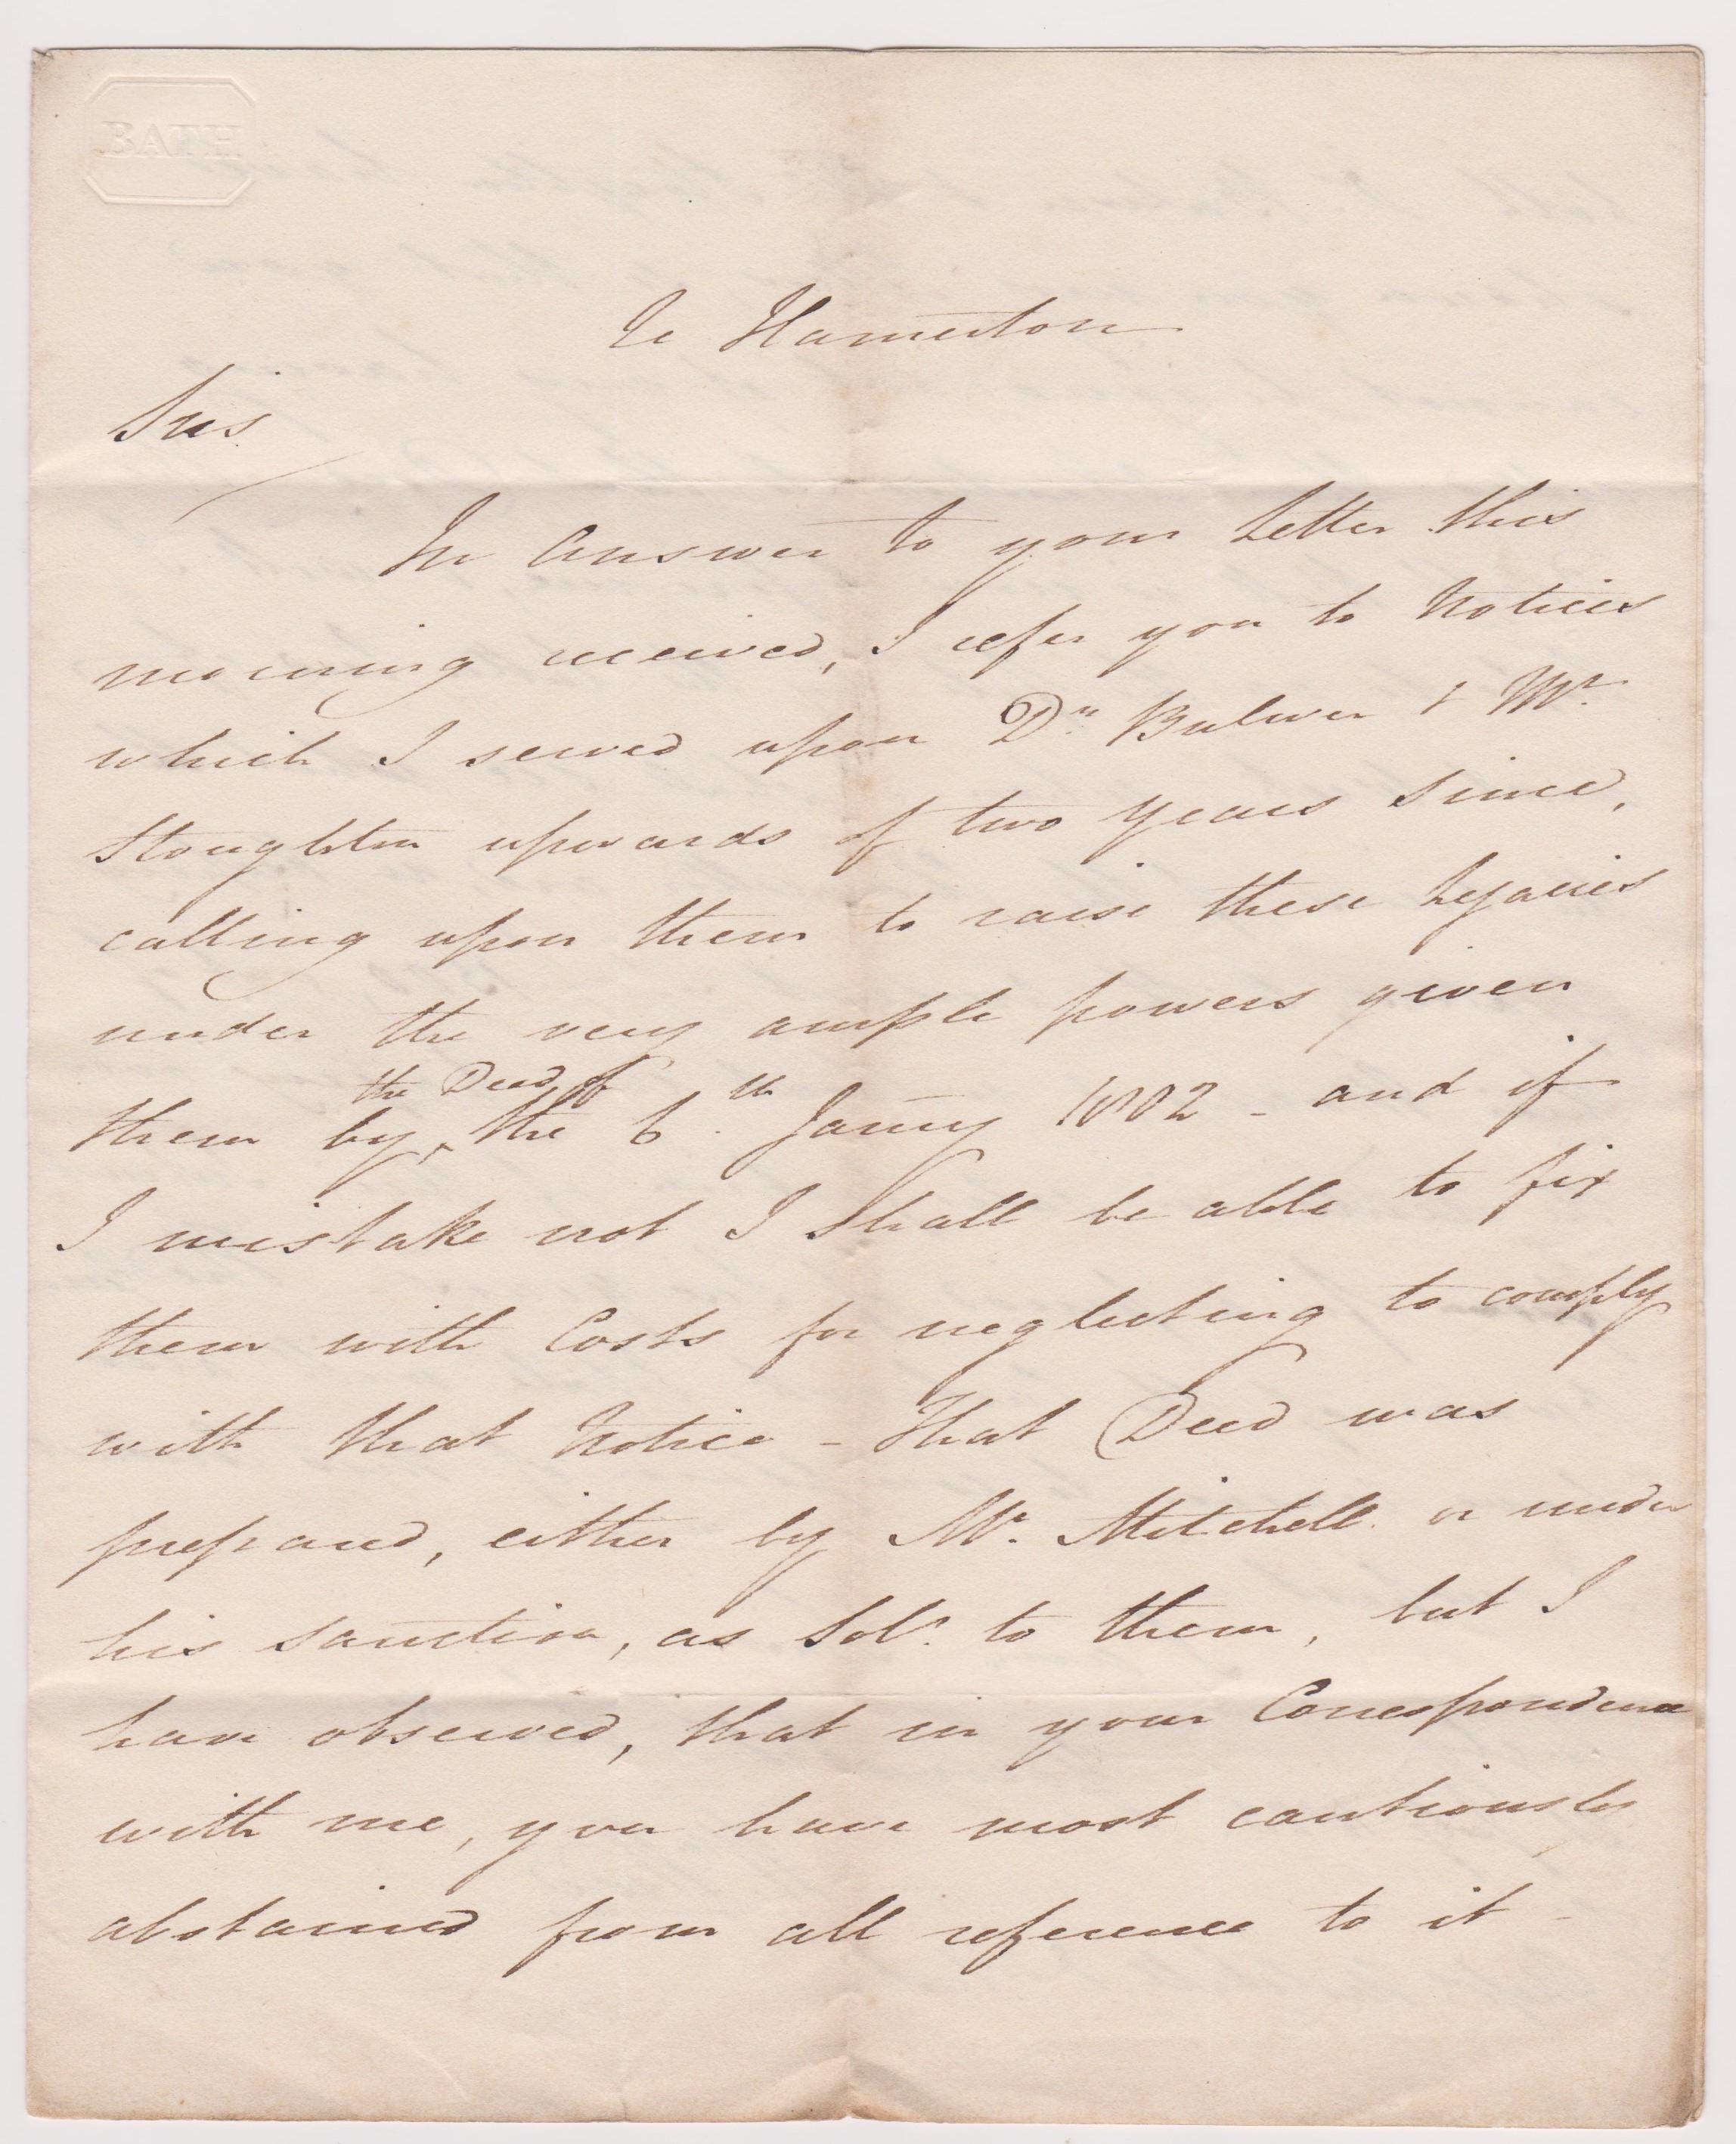 BATH
Re Hamerton
Sirs
In Answer to your Letter this
morning received, I refer you to Notices
which I served upon Dr. Bulwer & Mr.
Stoughton upwards of two years since,
calling upon them to raise these Legacies
under the very ample powers given
the Deed of
them by ^ the 6th Janry 1802 - and if
I mistake not I shall be able to fix
them with Costs for neglecting to comply
with that Notice - That Deed was
prepared, either by Mr. Mitchell or under
his sanction, as Solr. to them, but I
have observed, that in your Correspondence
with me, you have most cautiously
abstained from all reference to it -